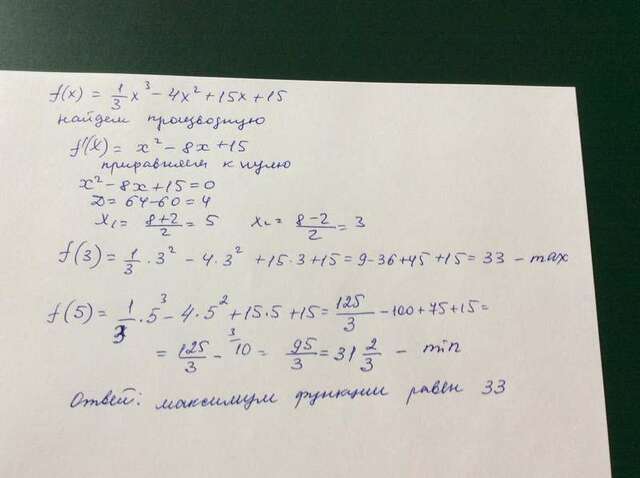 f(x) = 1/3 x³ - 4x² + 15x + 15
найдем производную
f'(x) = x² - 8x + 15
приравняем к нулю
x² - 8x + 15 = 0
D = 64 - 60 = 4
x₁ = (8+2)/2 = 5   x₂ = (8-2)/2 = 3
f(3) = 1/3 · 3² - 4·3² + 15·3 + 15 = 9 - 36 + 45 + 15 = 33 - max
f(5) = 1/3 · 5³ - 4·5² + 15·5 + 15 = 125/3 - 100 + 75 + 15 =
= 125/3 - ³10 = 95/3 = 31 2/3 - min
Ответ: максимум функции равен 33